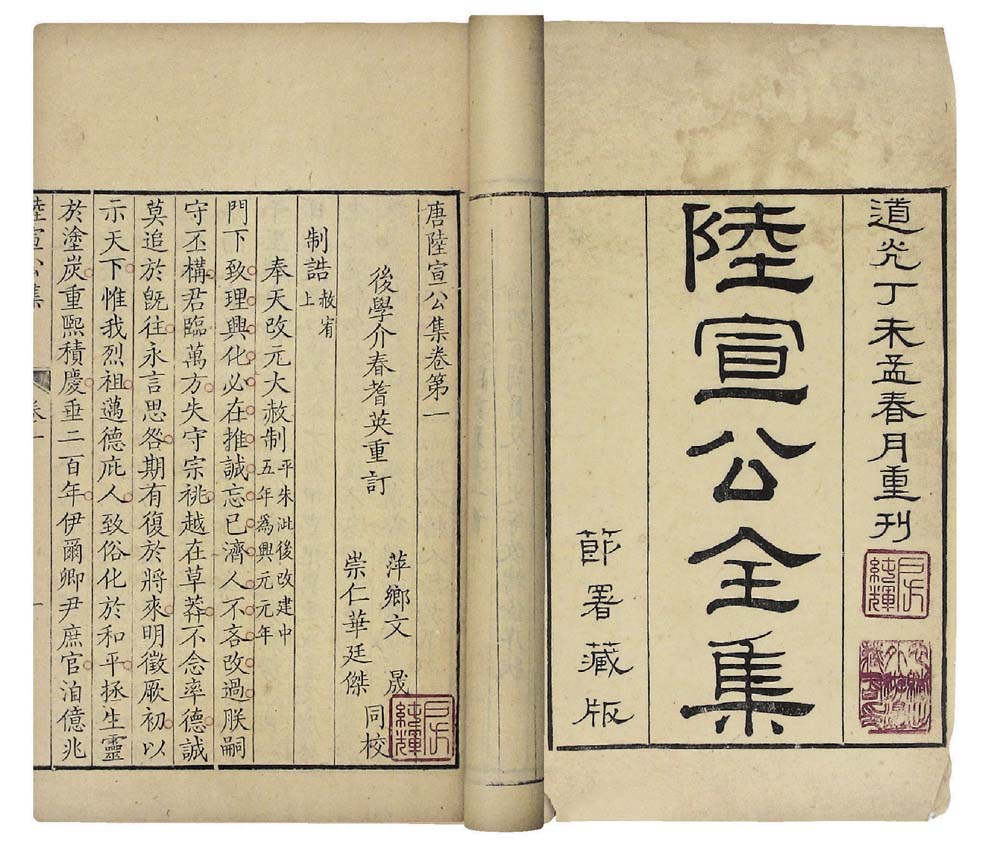 道光丁未孟春月重刊
陸宣公全集
節署藏版
唐陸宣公集卷第一
後學介春耆英重訂
萍鄉文晟
崇仁華廷傑
同校
制誥
赦宥
上
奉天改元大赦制
平朱泚後改建中
五年爲興元元年
門下致理興化必在推誠忘已濟人不吝改過朕嗣
守丕構君臨萬方失守宗祧越在草莽不念率德誠
莫追於旣往永言思咎期有復於將來明徵厥初以
示天下惟我烈祖邁德庇人致俗化於和平拯生靈
於塗炭重熙積慶垂二百年伊爾卿尹庶官洎億兆
陸宣公集
卷一
一